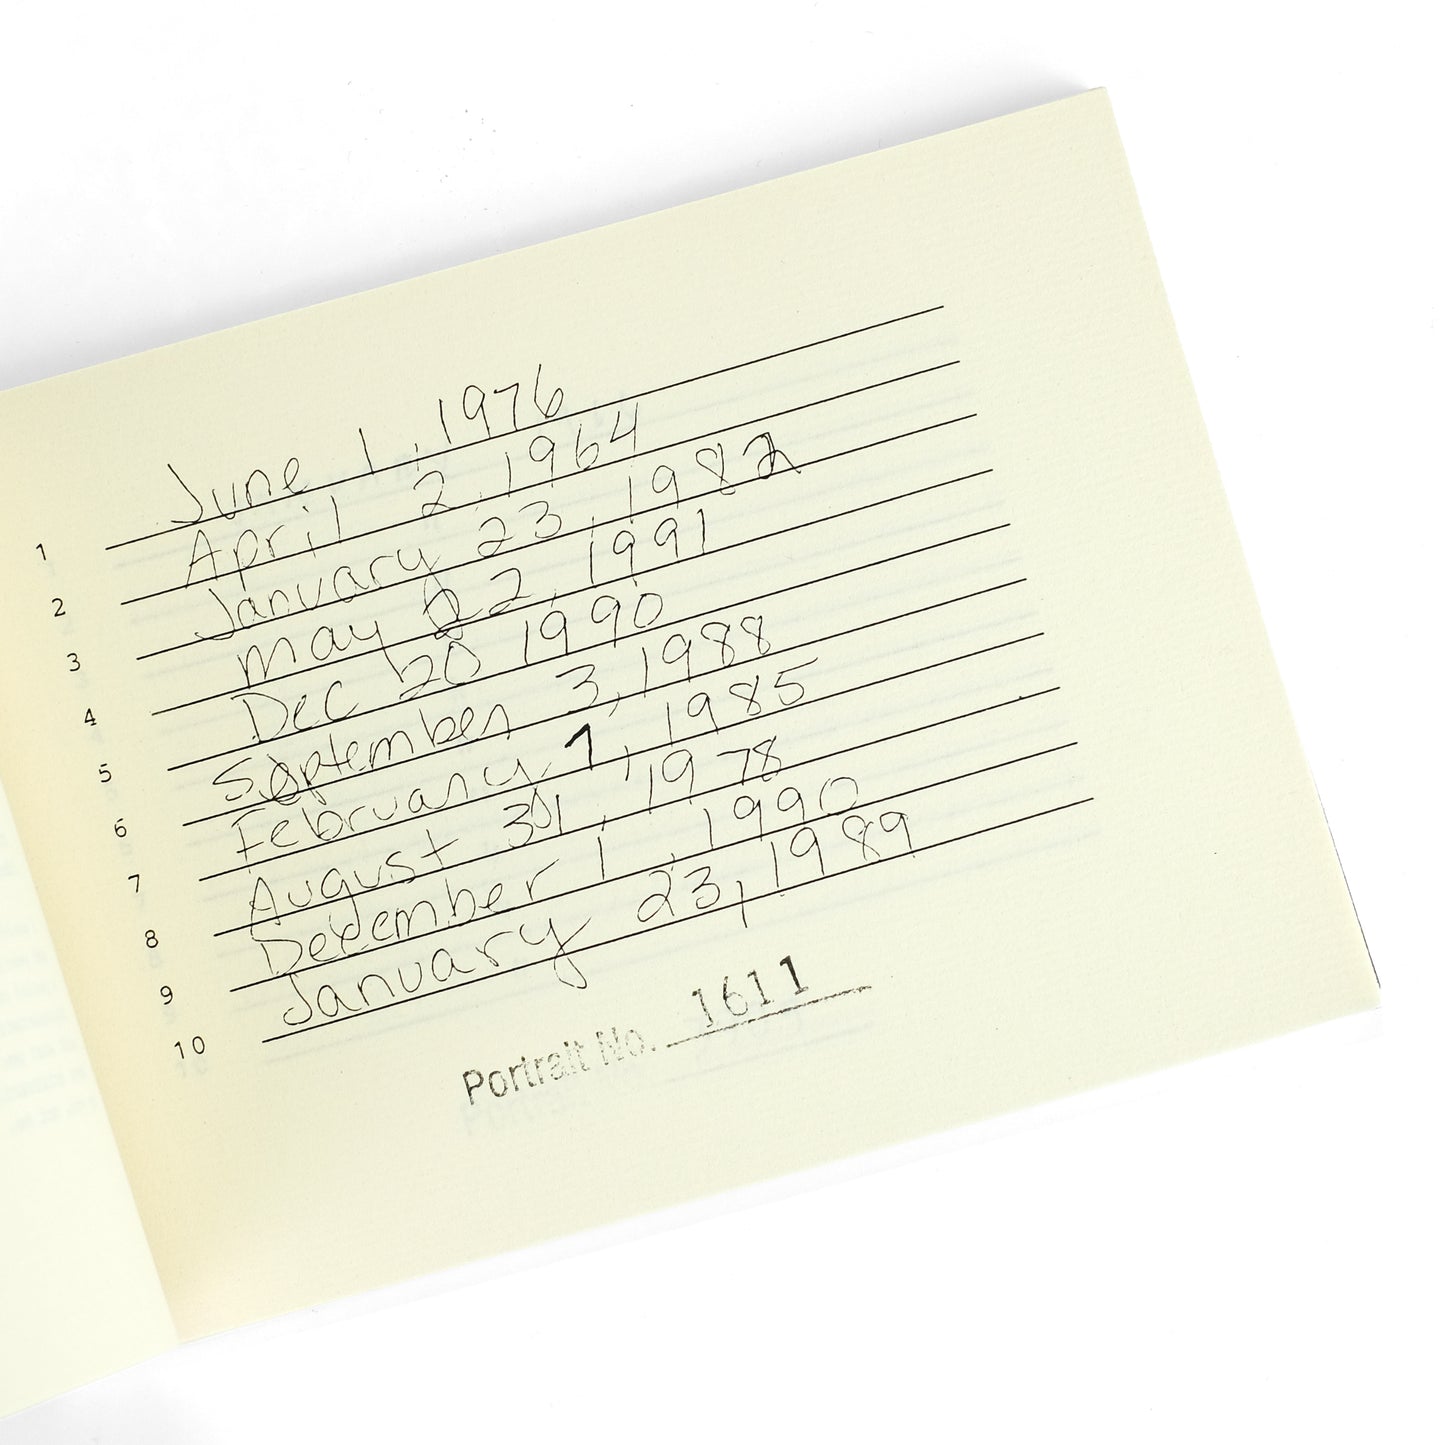 1 June 1, 1976
2 April 2, 1964
3 January 23, 1982
4 May 22, 1991
5 Dec 20 1990
6 September 3, 1988
7 February 1, 1985
8 August 31, 1978
9 December 1, 1990
10 January 23, 1989
Portrait No. 1611